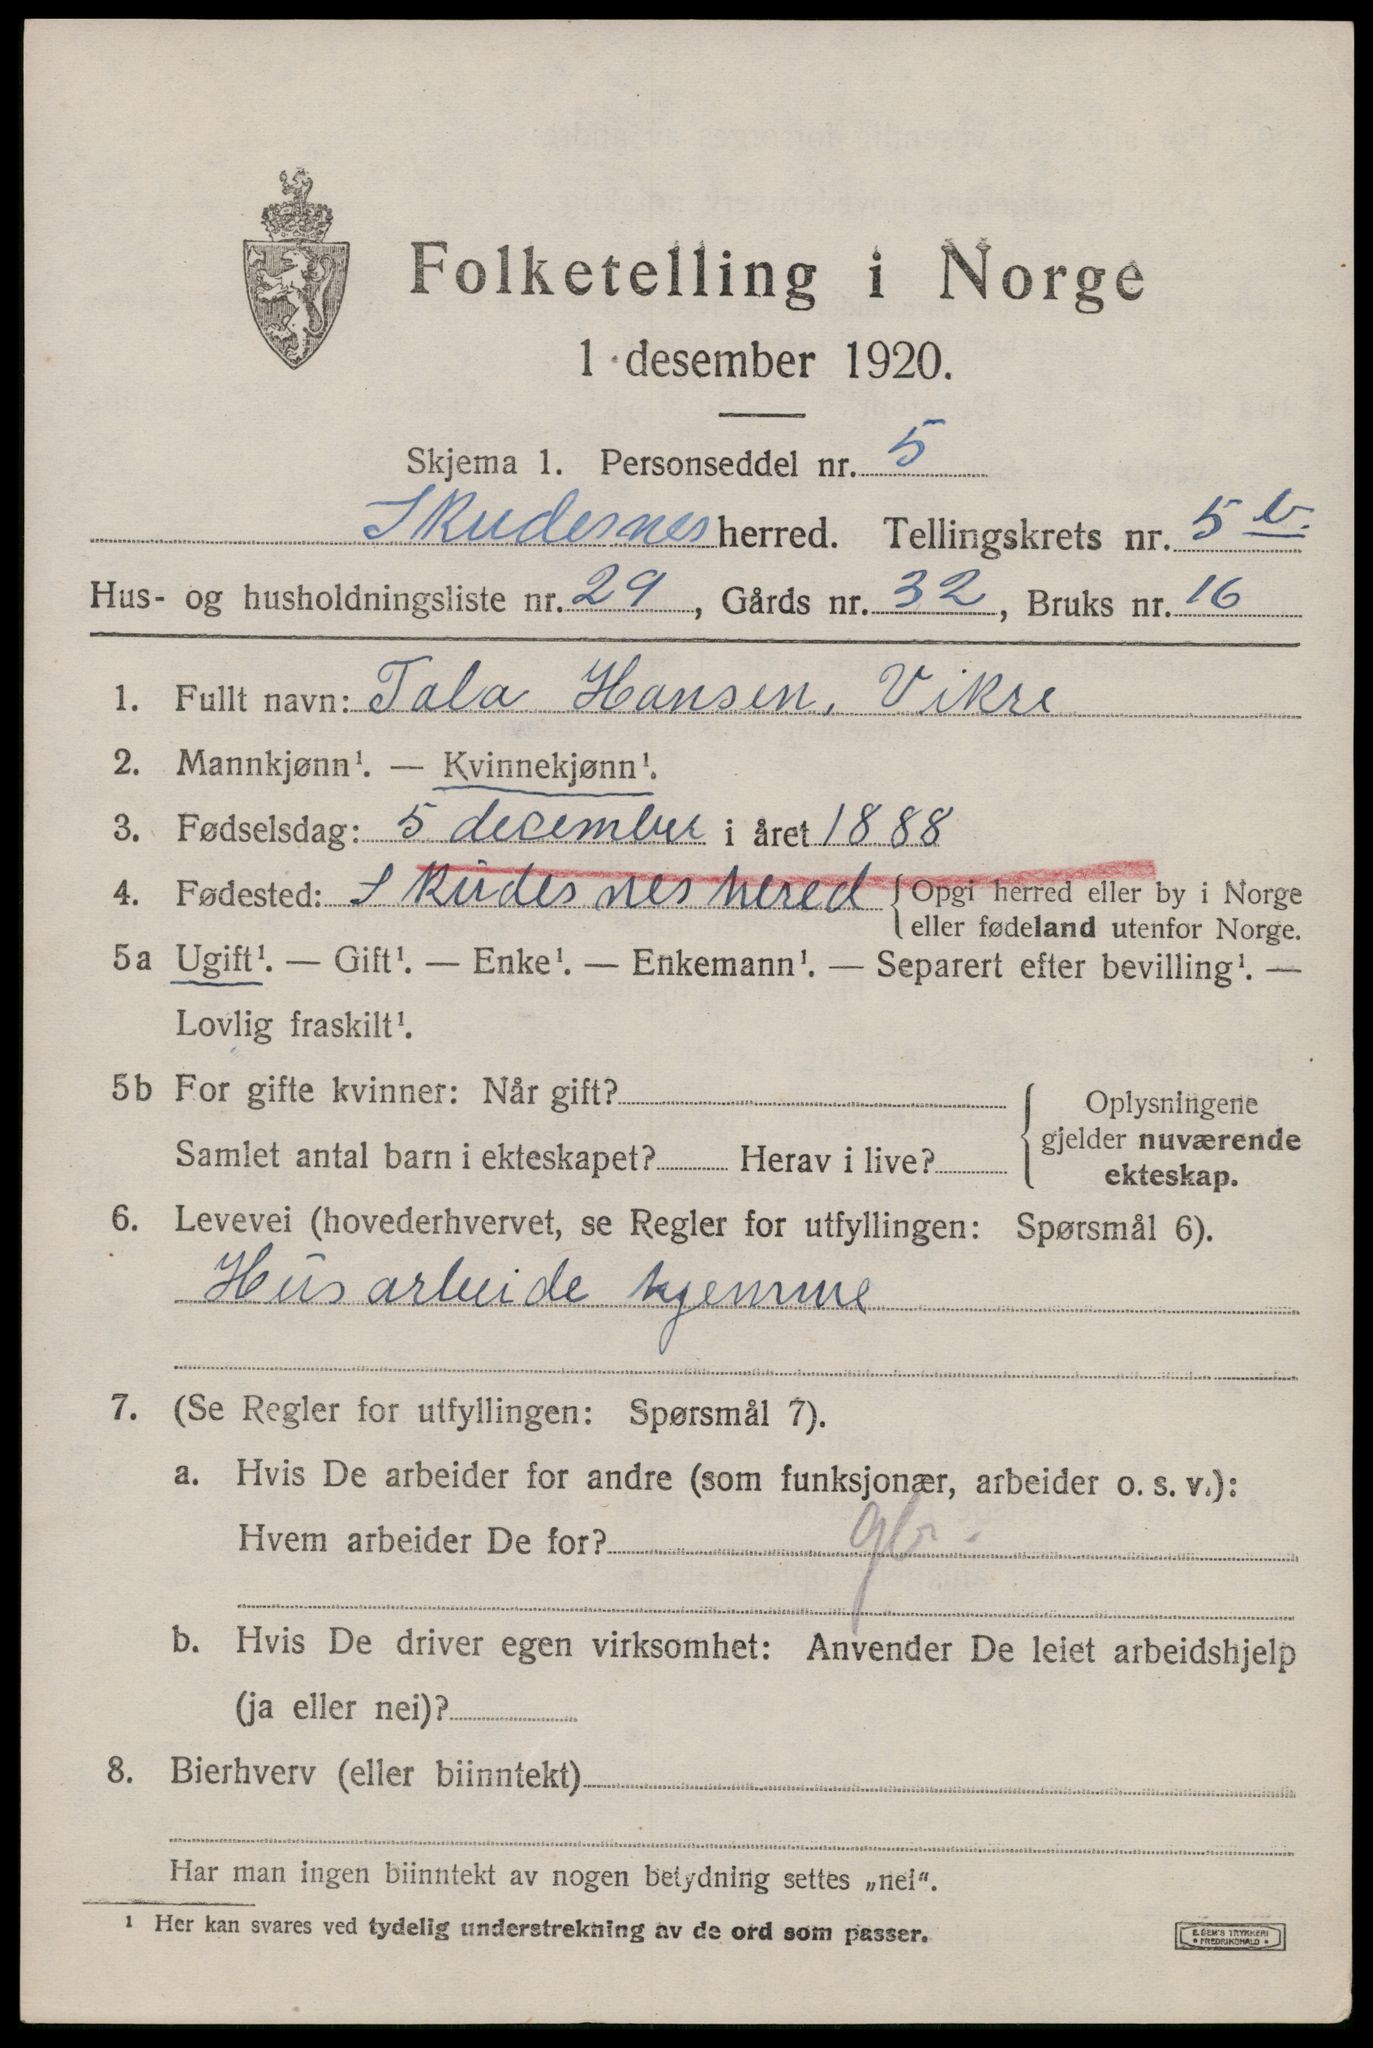 Folketelling i Norge
1 desember 1920.
Skjema 1. Personseddel nr. 5
Skudesnes herred. Tellingskrets nr. 5 b.
Hus- og husholdningsliste nr. 29, Gårds nr. 32, Bruks nr. 16
1. Fullt navn: Tala Hansen, Vikre
2. Mannkjønn¹. — Kvinnekjønn¹.
3. Fødselsdag: 5 december i året 1888
4. Fødested: Skudesnes hered {Opgi herred eller by i Norge
eller fødeland utenfor Norge.
5a Ugift¹. — Gift¹. — Enke¹. — Enkemann¹. — Separert efter bevilling¹. —
Lovlig fraskilt¹.
5b For gifte kvinner: Når gift?
Samlet antal barn i ekteskapet? Herav i live?
Oplysningene
gjelder nuværende
ekteskap.
6. Levevei (hovederhvervet, se Regler for utfyllingen: Spørsmål 6).
Hus arbeide hjemme
7. (Se Regler for utfyllingen: Spørsmål 7).
a. Hvis De arbeider for andre (som funksjonær, arbeider o. s. v.):
Hvem arbeider De for?
b. Hvis De driver egen virksomhet: Anvender De leiet arbeidshjelp
(ja eller nei)?
8. Bierhverv (eller biinntekt)
Har man ingen biinntekt av nogen betydning settes „nei“.
¹ Her kan svares ved tydelig understrekning av de ord som passer.
E. SEM'S TRYKKERI
• FREDRIKSHALD •